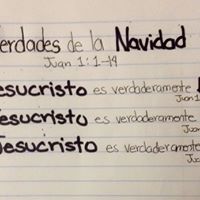 erdades de la Navidad
Juan 1:1-14
esucristo es verdaderamente
Juan 1
esucristo es verdaderamente
Jesucristo es verdaderamente